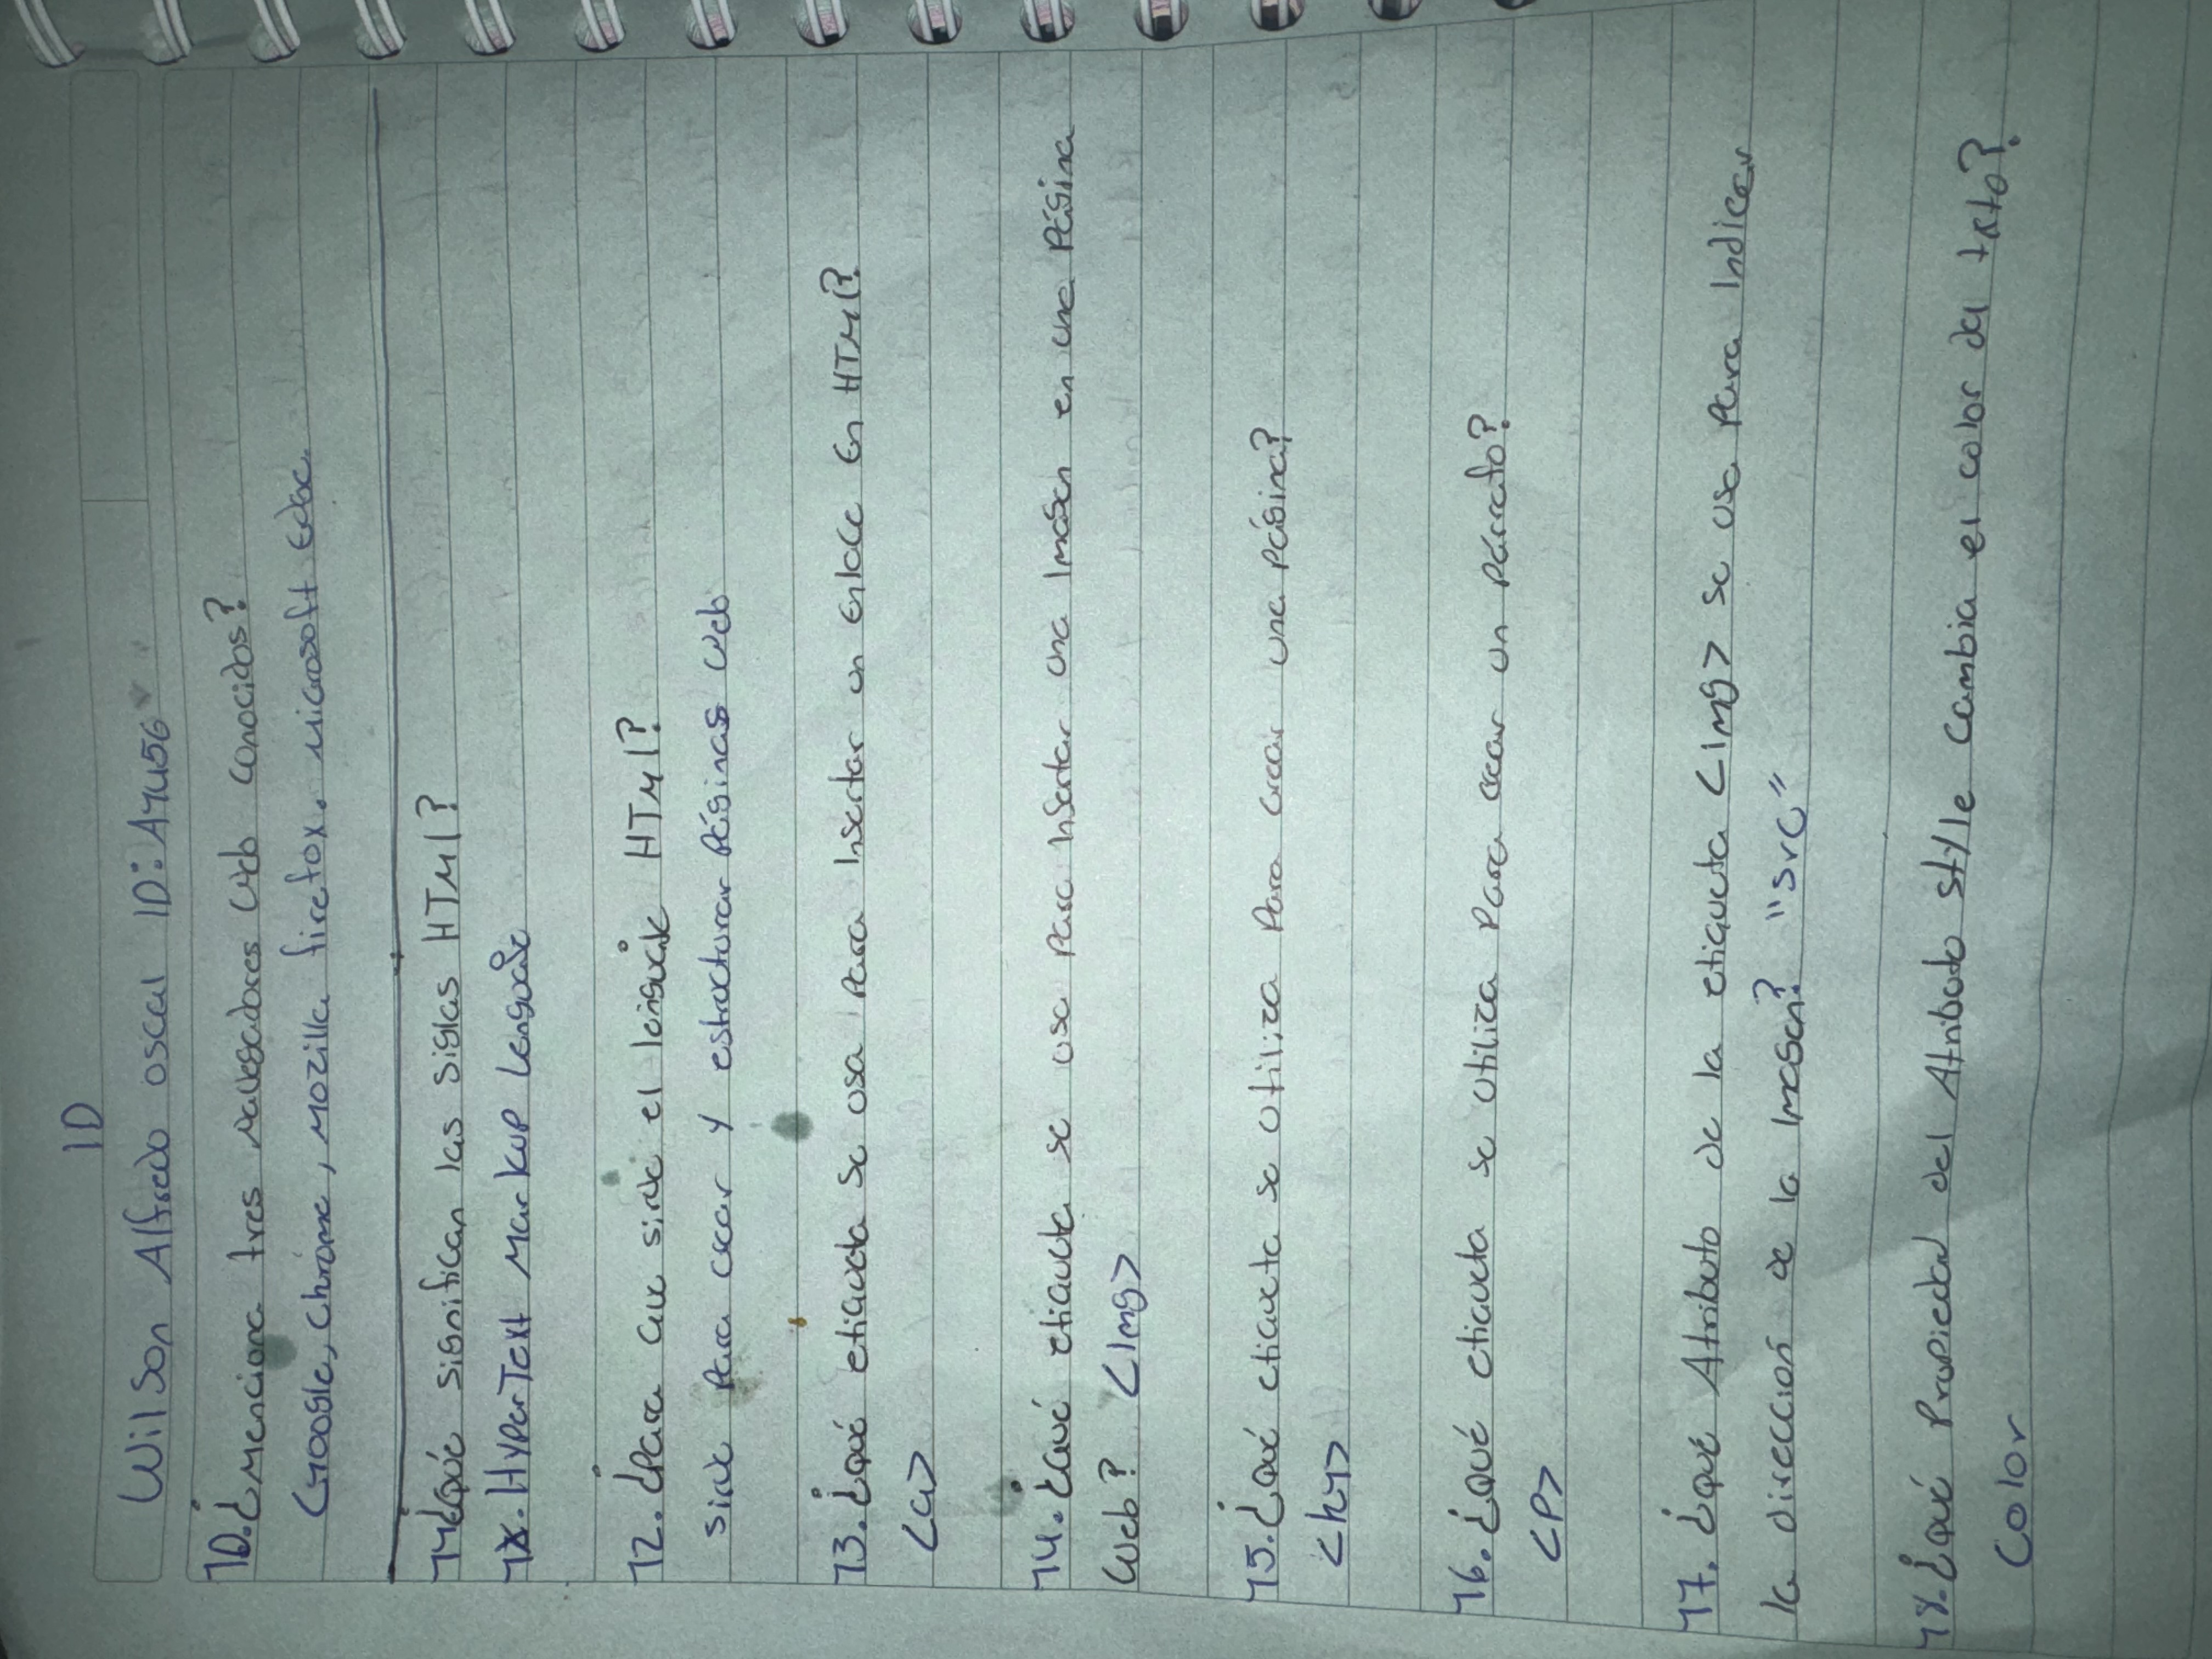 ID
Wilson Alfredo oscal ID: A4456
10. ¿Menciona tres navegadores web conocidos?
Google, chrome, Mozilla firefox. Microsoft edge.
11 ¿qué significan las siglas HTMl?
11. HyperText Markup Lenguage
12. ¿Para que sirve el lenguaje HTMl?
sirve Para crear y estructurar Páginas web
13. ¿qué etiqueta se usa Para Insertar un enlace en HTMl?
<a>
14. ¿qué etiqueta se usa Para Insertar una Imagen en una Página
web? <Img>
15. ¿qué etiqueta se utiliza Para crear una Página?
<h1>
16. ¿qué etiqueta se utiliza Para crear un Párrafo?
<P>
17. ¿qué Atributo de la etiqueta <Img> se usa Para Indicar
la dirección de la Imagen? "src"
18. ¿qué Propiedad del Atributo style cambia el color del texto?
Color